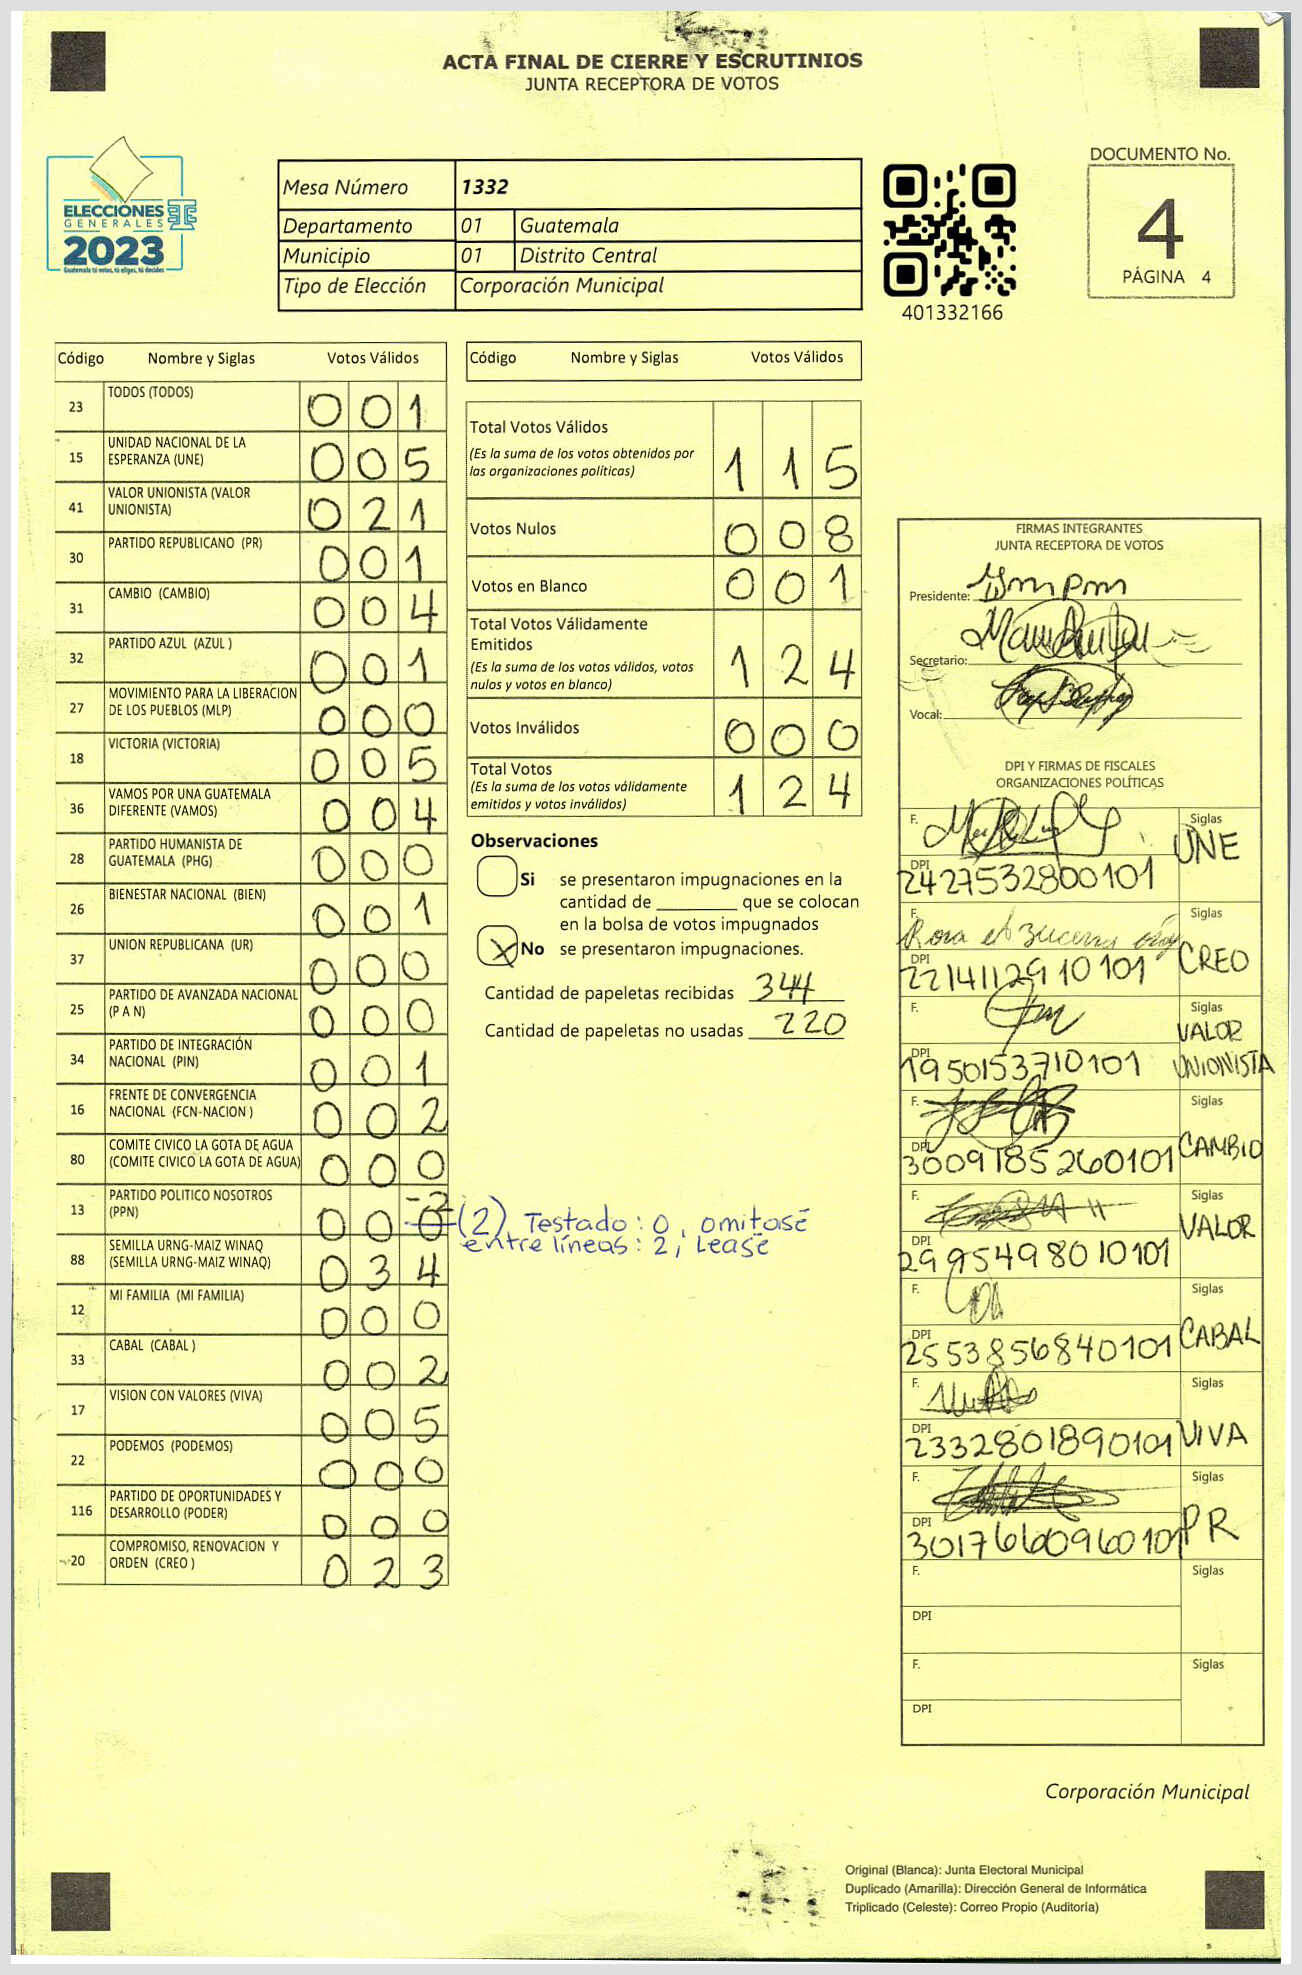 ACTA FINAL DE CIERRE Y ESCRUTINIOS
JUNTA RECEPTORA DE VOTOS
ELECCIONES
GENERALES
2023
Guatemala tú votas, tú eliges, tú decides
Mesa Número 1332
Departamento 01 Guatemala
Municipio 01 Distrito Central
Tipo de Elección Corporación Municipal
401332166
DOCUMENTO No.
4
PÁGINA 4
Código Nombre y Siglas Votos Válidos
23 TODOS (TODOS) 0 0 1
15 UNIDAD NACIONAL DE LA
ESPERANZA (UNE) 0 0 5
41 VALOR UNIONISTA (VALOR
UNIONISTA) 0 2 1
30 PARTIDO REPUBLICANO (PR) 0 0 1
31 CAMBIO (CAMBIO) 0 0 4
32 PARTIDO AZUL (AZUL ) 0 0 1
27 MOVIMIENTO PARA LA LIBERACION
DE LOS PUEBLOS (MLP) 0 0 0
18 VICTORIA (VICTORIA) 0 0 5
36 VAMOS POR UNA GUATEMALA
DIFERENTE (VAMOS) 0 0 4
28 PARTIDO HUMANISTA DE
GUATEMALA (PHG) 0 0 0
26 BIENESTAR NACIONAL (BIEN) 0 0 1
37 UNION REPUBLICANA (UR) 0 0 0
25 PARTIDO DE AVANZADA NACIONAL
(P A N) 0 0 0
34 PARTIDO DE INTEGRACIÓN
NACIONAL (PIN) 0 0 1
16 FRENTE DE CONVERGENCIA
NACIONAL (FCN-NACION ) 0 0 2
80 COMITE CIVICO LA GOTA DE AGUA
(COMITE CIVICO LA GOTA DE AGUA) 0 0 0
13 PARTIDO POLITICO NOSOTROS
(PPN) 0 0 0 -2 (2) Testado: 0, omitase
entre líneas: 2, Lease
88 SEMILLA URNG-MAIZ WINAQ
(SEMILLA URNG-MAIZ WINAQ) 0 3 4
12 MI FAMILIA (MI FAMILIA) 0 0 0
33 CABAL (CABAL ) 0 0 2
17 VISION CON VALORES (VIVA) 0 0 5
22 PODEMOS (PODEMOS) 0 0 0
116 PARTIDO DE OPORTUNIDADES Y
DESARROLLO (PODER) 0 0 0
20 COMPROMISO, RENOVACION Y
ORDEN (CREO ) 0 2 3
Código Nombre y Siglas Votos Válidos
Total Votos Válidos
(Es la suma de los votos obtenidos por
las organizaciones políticas) 1 1 5
Votos Nulos 0 0 8
Votos en Blanco 0 0 1
Total Votos Válidamente
Emitidos
(Es la suma de los votos válidos, votos
nulos y votos en blanco) 1 2 4
Votos Inválidos 0 0 0
Total Votos
(Es la suma de los votos válidamente
emitidos y votos inválidos) 1 2 4
Observaciones
Si se presentaron impugnaciones en la
cantidad de ________ que se colocan
en la bolsa de votos impugnados
X No se presentaron impugnaciones.
Cantidad de papeletas recibidas 344
Cantidad de papeletas no usadas 220
FIRMAS INTEGRANTES
JUNTA RECEPTORA DE VOTOS
Presidente:
Secretario:
Vocal:
DPI Y FIRMAS DE FISCALES
ORGANIZACIONES POLÍTICAS
F. Siglas UNE
DPI 2427532800101
F. Rosa Siglas CREO
DPI 2214112910101
F. Siglas VALOR
UNIONISTA
DPI 1950153710101
F. Siglas CAMBIO
DPI 3009185260101
F. Siglas VALOR
DPI 2995498010101
F. Siglas CABAL
DPI 2553856840101
F. Siglas VIVA
DPI 2332801890101
F. Siglas PR
DPI 3017660960101
F. Siglas
DPI
F. Siglas
DPI
Corporación Municipal
Original (Blanca): Junta Electoral Municipal
Duplicado (Amarilla): Dirección General de Informática
Triplicado (Celeste): Correo Propio (Auditoría)